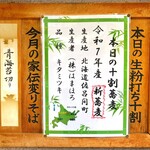 本日の生粉打ち十割
本日の十割蕎麦
令和7年産 新蕎麦
生産地 北海道佐呂間町
生産者 (株)はまほろ
品種 キタミツキ
今月の家伝変りそば
青海苔切り